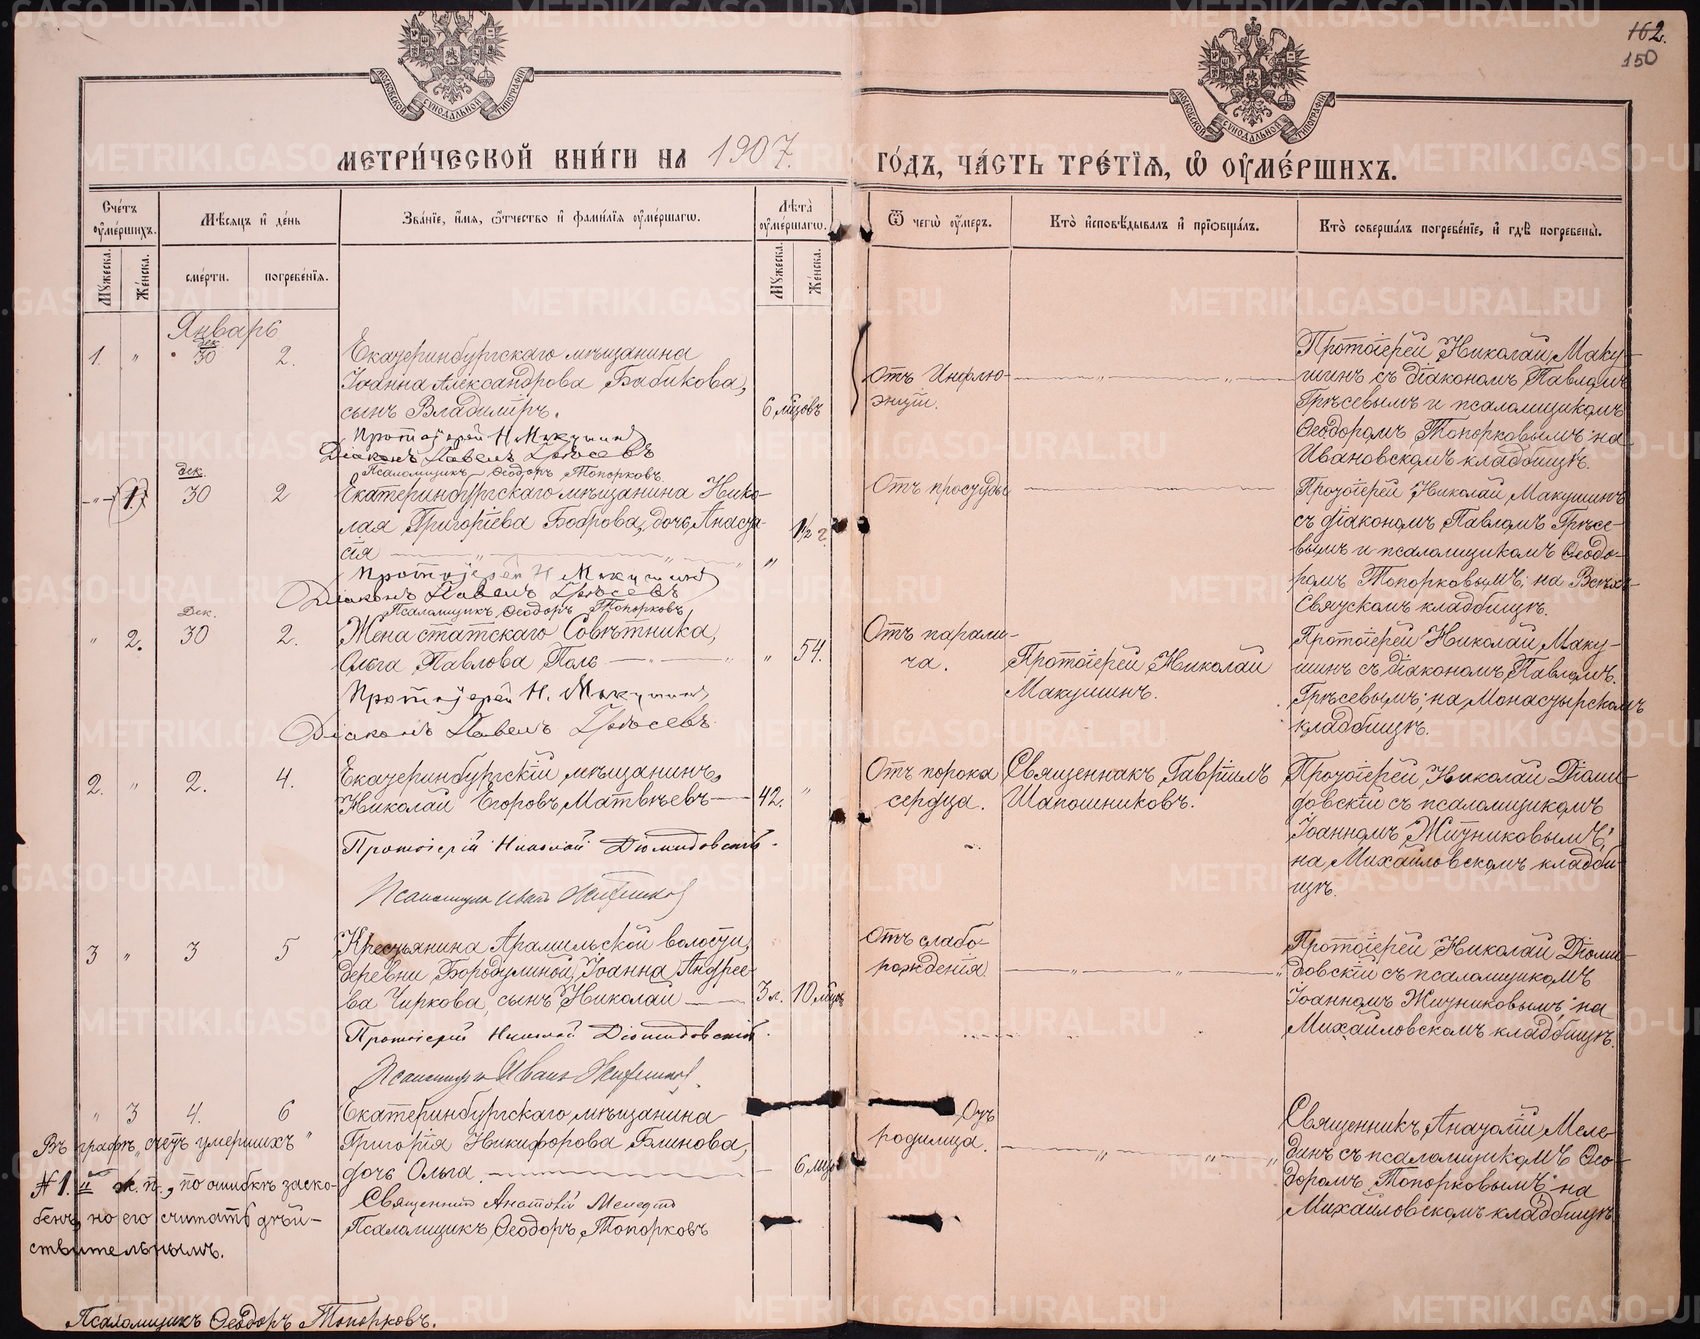 162.
150
МЕТРИ́ЧЕСКОЙ КНИ́ГИ НА 1907.
ГО́ДЪ, ЧА́СТЬ ТРЕ́ТЇѦ, Ѽ ОУ҆МЕ́РШИХЪ.
Сче́тъ оу҆ме́ршихъ.
Мꙋ́жеска.
Же́нска.
Мѣ́сѧцъ и҆ де́нь
сме́рти.
погребе́нїѧ.
Зва́нїе, и҆́мѧ, ѻ҆́тчество и҆ фами́лїѧ оу҆ме́ршагѡ.
Лѣ́та оу҆ме́ршагѡ.
Мꙋ́жеска.
Же́нска.
Ѿ чегѡ̀ оу҆́меръ.
Кто̀ и҆сповѣ́дывалъ и҆ прїѡбща́лъ.
Кто̀ соверша́лъ погребе́нїе, и҆ гдѣ̀ погребены̀.
Январь
1. " дек 30 2.
Екатеринбургскаго мѣщанина
Іоанна Александрова Бабикова,
сынъ Владиміръ.
6 мѣцовъ
Протоіерей Н Макушинъ
Діаконъ Павелъ Грѣсевъ
Псаломщикъ Ѳеодоръ Топорковъ.
Отъ Инфлю-
энціи.
Протоіерей Николай Маку-
шинъ съ діакономъ Павломъ
Грѣсевымъ и псаломщикомъ
Ѳеодоромъ Топорковымъ; на
Ивановскомъ кладбищѣ.
" 1. дек. 30 2
Екатеринбургскаго мѣщанина Нико-
лая Григоріева Боброва, дочь Анаста-
сія
" 1½ г.
Протоіерей Н Макушинъ
Діаконъ Павелъ Грѣсевъ
Псаломщикъ Ѳеодоръ Топорковъ
Отъ простуды
Протоіерей Николай Макушинъ
съ діакономъ Павломъ Грѣсе-
вымъ и псаломщикомъ Ѳеодо-
ромъ Топорковымъ; на Всѣхъ-
Святскомъ кладбищѣ.
" 2. Дек. 30 2.
Жена статскаго Совѣтника,
Ольга Павлова Поль
" 54.
Протоіерей Н. Макушинъ
Діаконъ Павелъ Грѣсевъ
Отъ парали-
ча.
Протоіерей Николай
Макушинъ.
Протоіерей Николай Маку-
шинъ съ діакономъ Павломъ
Грѣсевымъ; на Монастырскомъ
кладбищѣ.
2. " 2. 4.
Екатеринбургскій мѣщанинъ,
Николай Егоровъ Матвѣевъ
42. "
Протоіерей Николай Діомидовскій.
Псаломщикъ Иванъ Житниковъ
Отъ порока
сердца.
Священникъ Гавріилъ
Шапошниковъ.
Протоіерей Николай Діоми-
довскій съ псаломщикомъ
Іоанномъ Житниковымъ;
на Михайловскомъ кладби-
щѣ.
3 " 3 5
Крестьянина Арамильской волости,
деревни Бородулиной, Іоанна Андрее-
ва Чиркова, сынъ Николай
3 л. 10 мѣцовъ
Протоіерей Николай Діомидовскій.
Псаломщикъ Иванъ Житниковъ.
Отъ слабо-
рожденія
Протоіерей Николай Діоми-
довскій съ псаломщикомъ
Іоанномъ Житниковымъ; на
Михайловскомъ кладбищѣ.
" 3 4. 6
Екатеринбургскаго мѣщанина
Григорія Никифорова Блинова,
дочь Ольга.
6 мѣц
Священникъ Анатолій Мелединъ
Псаломщикъ Ѳеодоръ Топорковъ
Отъ
родимца.
Священникъ Анатолій Меле-
динъ съ псаломщикомъ Ѳео-
доромъ Топорковымъ; на
Михайловскомъ кладбищѣ
Въ графѣ „счетъ умершихъ"
№ 1. ж. п., по ошибкѣ заско-
бенъ, но его считать дѣй-
ствительнымъ.
Псаломщикъ Ѳеодоръ Топорковъ.